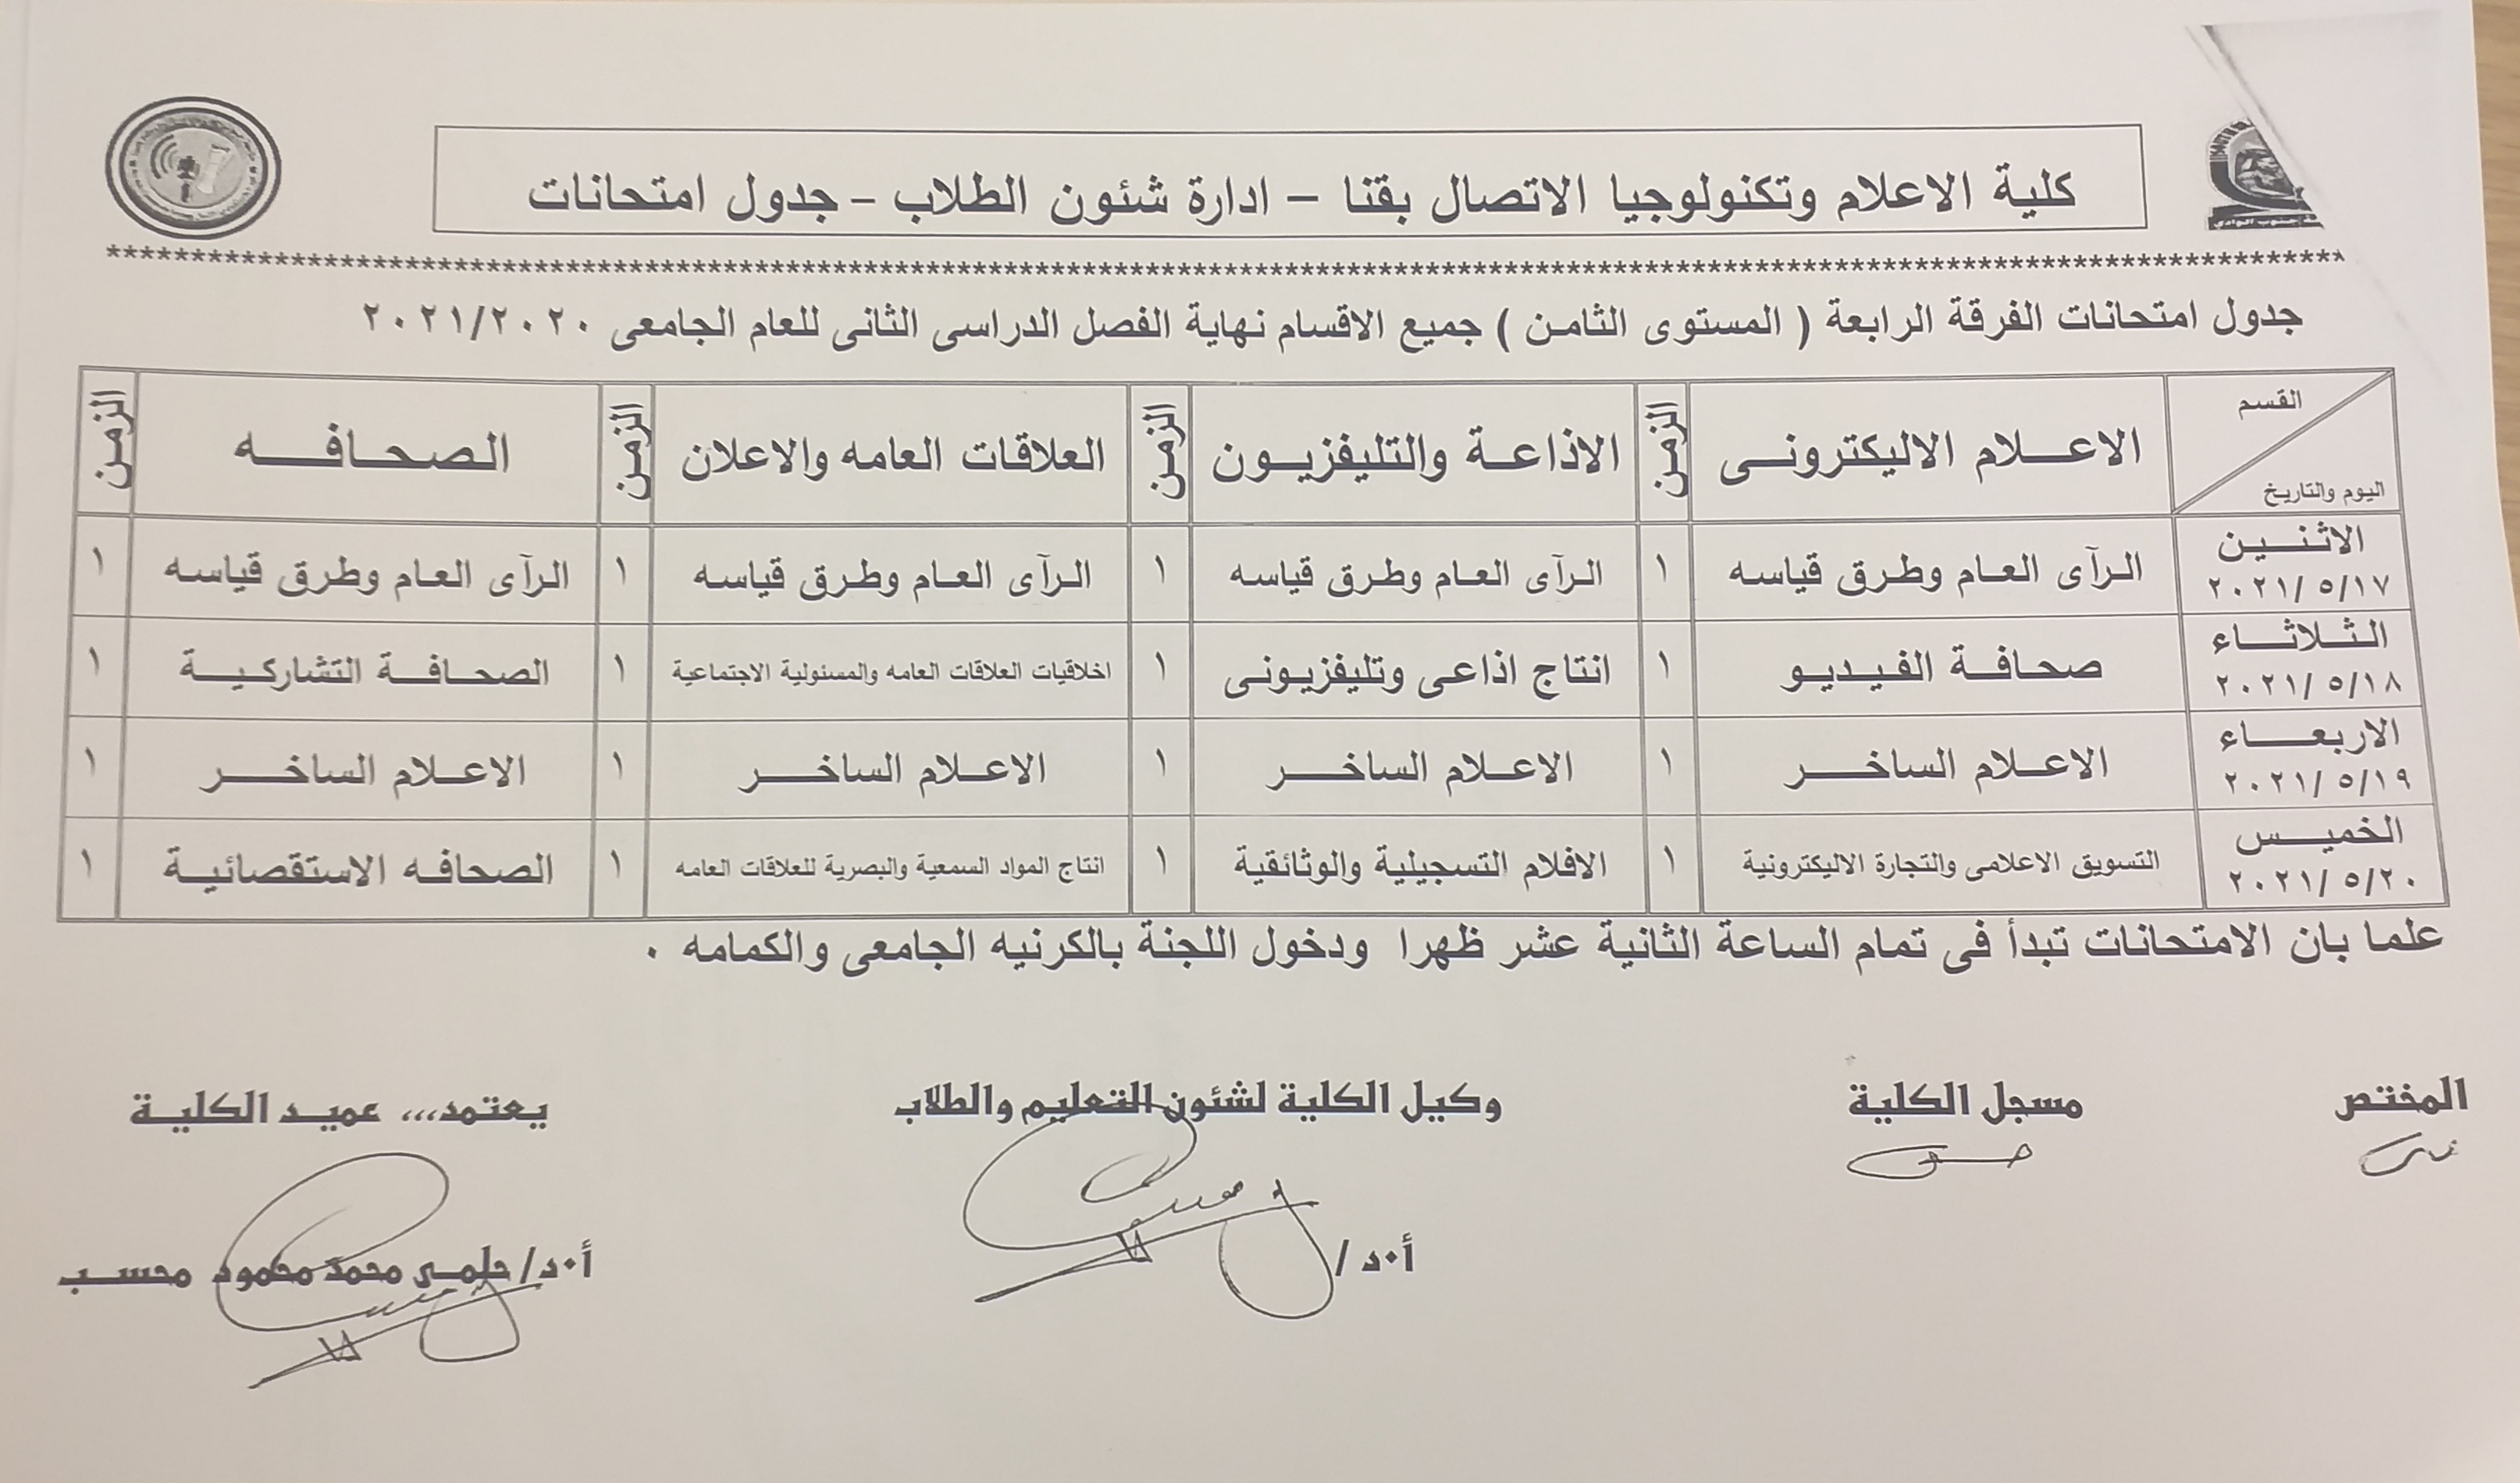 كلية الاعلام وتكنولوجيا الاتصال بقنا – ادارة شئون الطلاب - جدول امتحانات
جدول امتحانات الفرقة الرابعة ( المستوى الثامن ) جميع الاقسام نهاية الفصل الدراسى الثانى للعام الجامعى ٢٠٢١/٢٠٢٠
القسم
اليوم والتاريخ
الاعلام الاليكترونى الزمن الاذاعة والتليفزيون الزمن العلاقات العامه والاعلان الزمن الصحافه الزمن
الاثنين
٢٠٢١/ ٥/١٧
الرآى العام وطرق قياسه ١ الرآى العام وطرق قياسه ١ الرآى العام وطرق قياسه ١ الرآى العام وطرق قياسه ١
الثلاثاء
٢٠٢١/ ٥/١٨
صحافة الفيديو ١ انتاج اذاعى وتليفزيونى ١ اخلاقيات العلاقات العامه والمسئولية الاجتماعية ١ الصحافة التشاركية ١
الاربعاء
٢٠٢١/ ٥/١٩
الاعلام الساخر ١ الاعلام الساخر ١ الاعلام الساخر ١ الاعلام الساخر ١
الخميس
٢٠٢١/ ٥/٢٠
التسويق الاعلامى والتجارة الاليكترونية ١ الافلام التسجيلية والوثائقية ١ انتاج المواد السمعية والبصرية للعلاقات العامه ١ الصحافه الاستقصائية ١
علما بان الامتحانات تبدأ فى تمام الساعة الثانية عشر ظهرا ودخول اللجنة بالكرنيه الجامعى والكمامه .
المختص مسجل الكلية وكيل الكلية لشئون التعليم والطلاب يعتمد،،، عميد الكلية
أ٠د / أ٠د/ حلمى محمد محمود محسب